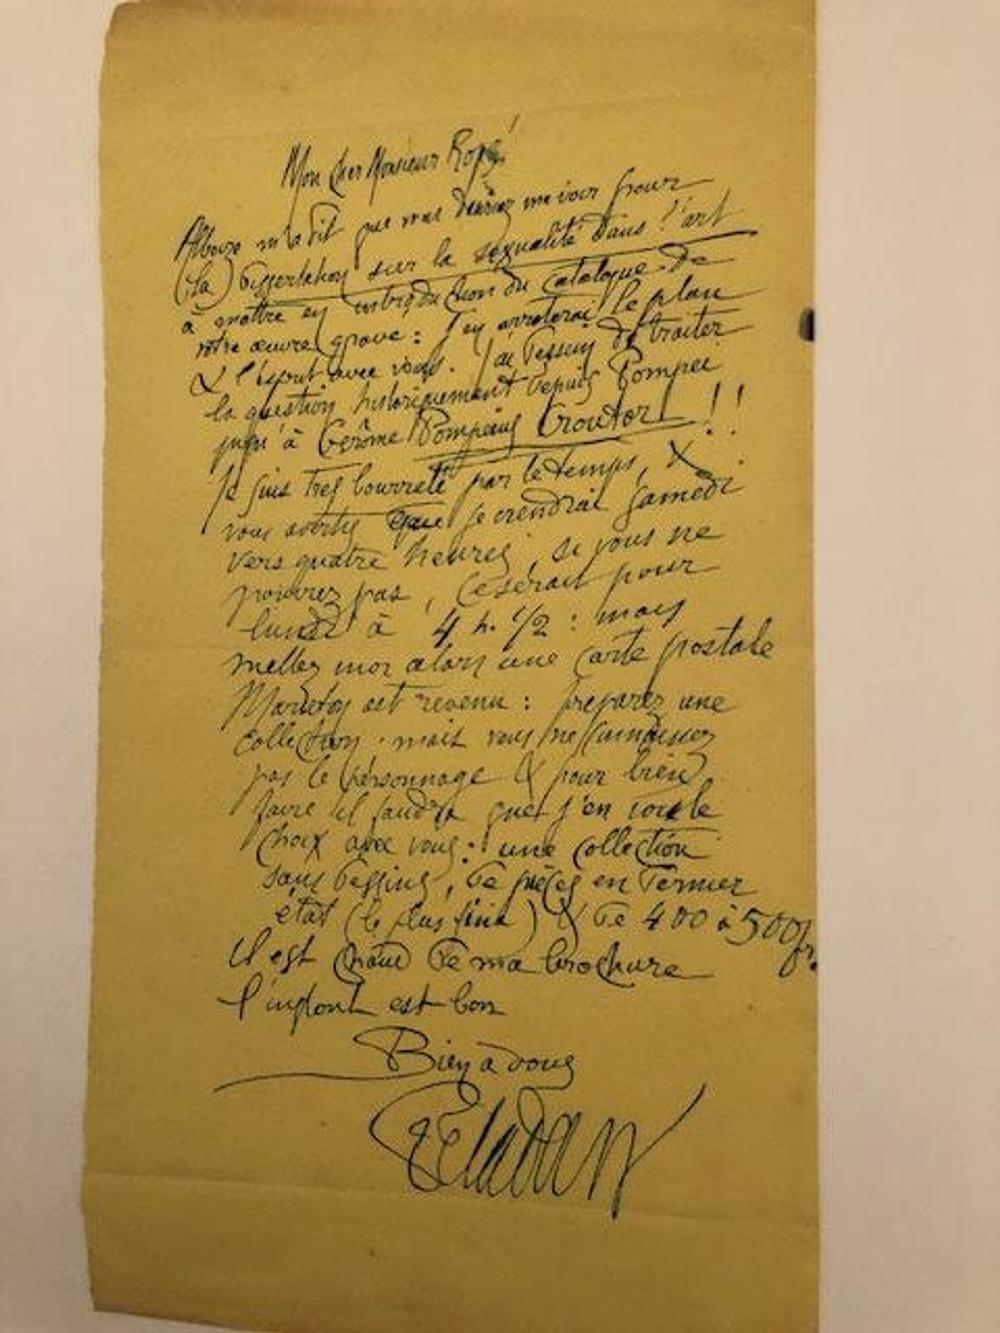 Mon cher Monsieur Rops
m'a dit que vous désiriez me voir pour
(la) Dissertation sur la sexualité dans l'art
à mettre en introduction du catalogue de
votre œuvre gravé : j'en arrêterai le plan
& l'esprit avec vous. J'ai dessein de traiter
la question historiquement depuis Pompei
jusqu'à Gerôme Pompeius Croutor !!!
Je suis tres bourrelé par le temps, &
vous avertis que je viendrai samedi
vers quatre heures, si vous ne
pouvez pas, ce serait pour
lundi à 4 h. 1/2 : mais
mettez moi alors une carte postale
Marieton est revenu : preparez une
collection. mais vous ne connaissez
pas le personnage & pour bien
faire il faudra que j'en
choix avec vous : une collection
sans dessins, de pièces en dernier
état (le plus fini) & de 400 à 500 fr.
Il est de ma brochure
est bon
Bien à vous
Péladan